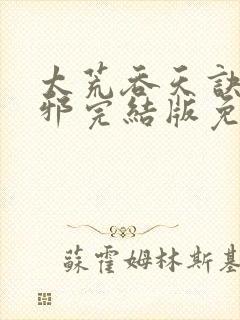 大荒吞天訣
邪完結版免
蘇霍姆林斯基